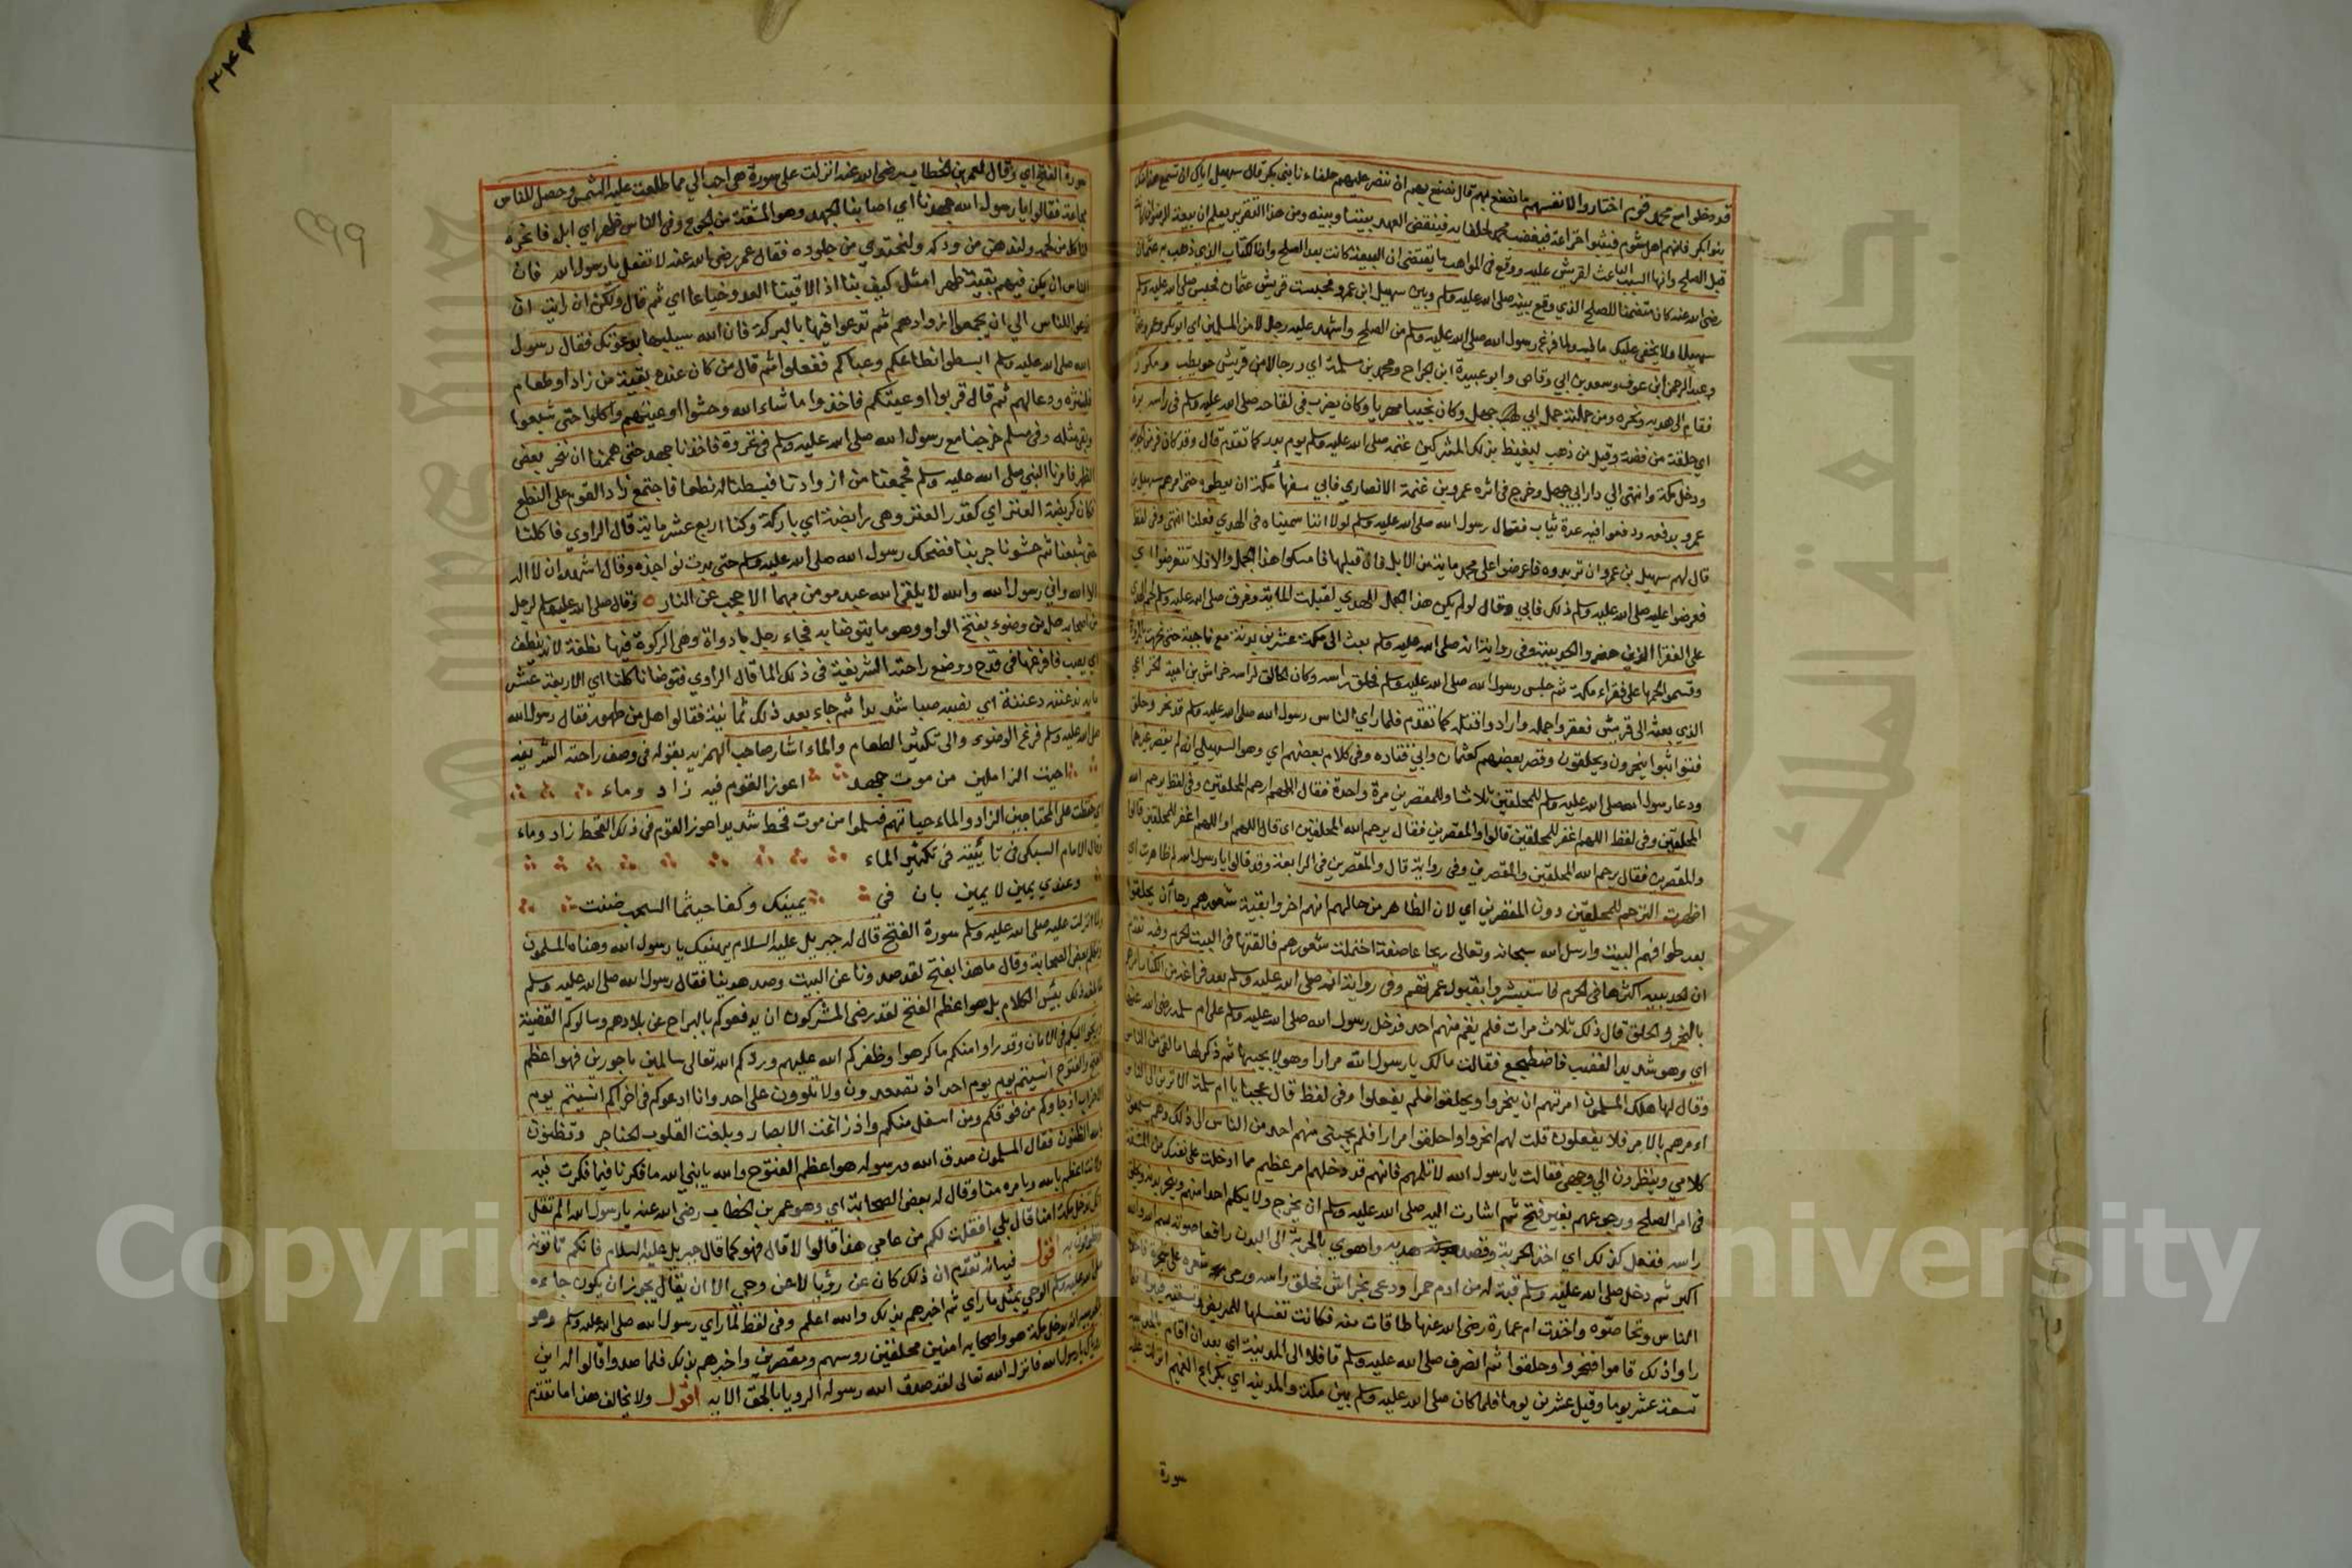 قد دخلوا مع محمد وقوم اختاروا لانفسهم ما نصنع بهم قال نصنع بهم ان ننصر عليهم حلفاءنا بني بكر قال سهيل اياك ان تسمع هذا منك
بنوا بكر فانهم اهل شوم فيثبوا خزاعة فيغضب محمد لحلفايه فينقض العهد بيننا وبينه ومن هذا التقرير يعلم ان بيعة الرضوان
قبل الصلح وانها السبب الباعث لقريش عليه ووقع في المواهب ما يقتضي ان البيعة كانت بعد الصلح وان الكتاب الذي ذهب به عثمان
رضي الله عنه كان متضمنا للصلح الذي وقع بينه صلى الله عليه وسلم وبين سهيل ابن عمرو فحبست قريش عثمان فحبس صلى الله عليه وسلم
سهيلا ولا يخفى عليك ما فيه ولما فرغ رسول الله صلى الله عليه وسلم من الصلح واشهد عليه رجالا من المسلمين اي ابو بكر وعمر وعثمان
وعبد الرحمن ابن عوف وسعد بن ابي وقاص وابو عبيدة ابن الجراح ومحمد بن مسلمة اي ورجالا من قريش حويطب ومكرز
فقام الى هديه ونحره ومن جملته جمل ابي جهل وكان نجيبا مهريا وكان يضرب في لقاحه صلى الله عليه وسلم في راسه برة
اي حلقة من فضة وقيل من ذهب ليغيظ بذلك المشركين غنمه صلى الله عليه وسلم يوم بدر كما تقدم قال وقد كان فر من الحديبية
ودخل مكة وانتهى الي دار ابي جهل وخرج في اثره عمرو بن غنمة الانصاري فابي سفهاء مكة ان يعطوه حتى امرهم سهيل بن
عمرو بدفعه ودفعوا فيه عدة ثياب فقال رسول الله صلى الله عليه وسلم لولا اننا سميناه في الهدي فعلنا انتهى وفي لفظ
قال لهم سهيل بن عمرو ان تريدوه فاعرضوا على محمد ماية من الابل فان قبلها فامسكوا هذا الجمل والا فلا تتعرضوا اي
فعرضوا عليه صلى الله عليه وسلم ذلك فابي وقال لو لم يكن هذا الجمل الهدي لقبلت الماية وفرق صلى الله عليه وسلم لحم الهدي
على الفقرا الذين حضروا الحديبية وفي رواية انه صلى الله عليه وسلم بعث الى مكة عشرين بدنة مع ناجية حتى نحرت بالمروة
وقسموا لحمها على فقراء مكة ثم جلس رسول الله صلى الله عليه وسلم فحلق راسه وكان الحالق لراسه خراش بن امية الخزاعي
الذي بعثه الى قريش فعقروا جمله وارادوا قتله كما تقدم فلما راي الناس رسول الله صلى الله عليه وسلم قد نحر وحلق
فتواثبوا ينحرون ويحلقون وقصر بعضهم كعثمان وابي قتادة وفي كلام بعضهم اي وهو السهيلي انه لم يقصر غيرهما
ودعا رسول الله صلى الله عليه وسلم للمحلقين ثلاثا وللمقصرين مرة واحدة فقال اللهم ارحم المحلقين وفي لفظ يرحم الله
المحلقين وفي لفظ اللهم اغفر للمحلقين قالوا والمقصرين فقال يرحم الله المحلقين اي قال اللهم او اللهم اغفر للمحلقين قالوا
والمقصرين فقال يرحم الله المحلقين والمقصرين وفي رواية قال والمقصرين في الرابعة وقد قالوا يا رسول الله لم ظاهرت اي
اظهرت الترحم للمحلقين دون المقصرين اي لان الظاهر من حالهم انهم اخروا بقية شعورهم رجا ان يحلقوا
بعد طوافهم البيت وارسل الله سبحانه وتعالى ريحا عاصفة احتملت شعورهم فالقتها في البيت الحرم وفيه تقدم
ان الحديبية اكثرها في الحرم فاستبشروا بقبول عمرتهم وفي رواية انه صلى الله عليه وسلم بعد فراغه من الكتاب امرهم
بالنحر والحلق قال ذلك ثلاث مرات فلم يقم منهم احد فدخل رسول الله صلى الله عليه وسلم على ام سلمة رضي الله عنها
اي وهو شديد الغضب فاضطجع فقالت مالك يا رسول الله مرارا وهو لا يجيبها ثم ذكر لها ما لقي من الناس
وقال لها هلك المسلمون امرتهم ان ينحروا ويحلقوا فلم يفعلوا وفي لفظ قال عجبا يا ام سلمة الا ترين الى الناس
امرهم بالامر فلا يفعلون قلت لهم انحروا واحلقوا مرارا فلم يجبني منهم احد من الناس الى ذلك وهم يسمعون
كلامي وينظرون الي وجهي فقالت يا رسول الله لا تلمهم فانهم قد دخلهم امر عظيم مما ادخلت على نفسك من المشقة
في امر الصلح ورجوعهم بغير فتح ثم اشارت اليه صلى الله عليه وسلم ان يخرج ولا يكلم احدا منهم وينحر بدنه ويحلق
راسه ففعل كذلك اي اخذ الحربة وقصد هديه واهوي بالحربة الى البدن رافعا صوته بسم الله والله
اكبر ثم دخل صلى الله عليه وسلم قبة له من ادم حمرا ودعى بخراش فحلق راسه ورمى شعره على شجرة فاخذه
الناس وتحاصوه واخذت ام عمارة رضي الله عنها طاقات منه فكانت تغسلها للمريض وتسقيه فيبرا فلما
راوا ذلك قاموا فنحروا وحلقوا ثم انصرف صلى الله عليه وسلم قافلا الى المدينة اي بعد ان اقام بالحديبية
تسعة عشر يوما وقيل عشرين يوما فلما كان صلى الله عليه وسلم بين مكة والمدينة اي بكراع الغميم انزلت عليه
سورة
٣٤٣
سورة الفتح اي وقال لعمر بن الخطاب رضي الله عنه انزلت علي سورة هي احب الي مما طلعت عليه الشمس وحصل للناس
مجاعة فقالوا يا رسول الله جهدنا اي اصابنا الجهد وهو المشقة من الجوع وفي الناس ظهر اي ابل فانحره
لناكل من لحمه ولندهن من ودكه ولنحتذي من جلوده فقال عمر رضي الله عنه لا تفعل يا رسول الله فان
الناس ان يكن فيهم بقية ظهر امثل كيف بنا اذا لاقينا العدو جياعا اي ثم قال ولكن ان رايت ان
تدعوا للناس الي ان يجمعوا ازوادهم ثم تدعوا فيها بالبركة فان الله سيبلغها بدعوتك فقال رسول
الله صلى الله عليه وسلم ابسطوا انطاعكم وعباكم ففعلوا ثم قال من كان عنده بقية من زاد او طعام
فلينثره ودعا لهم ثم قال قربوا اوعيتكم فاخذوا ما شاء الله وحشوا اوعيتهم واكلوا حتى شبعوا
وبقي مثله وفي مسلم خرجنا مع رسول الله صلى الله عليه وسلم في غزوة فاخذنا جهد حتى هممنا ان ننحر بعض
الظهر فامرنا النبي صلى الله عليه وسلم فجمعنا من ازوادنا فبسطنا له نطعا فاجتمع زاد القوم على النطع
فكان كربضة العنز اي كقدر العنز وهي رابضة اي باركة وكنا اربع عشر ماية قال الراوي فاكلنا
حتى شبعنا ثم حشونا جربنا فضحك رسول الله صلى الله عليه وسلم حتى بدت نواجذه وقال اشهد ان لا اله
الا الله واني رسول الله والله لا يلقى الله عبد مومن بهما الا حجب عن النار وقال صلى الله عليه وسلم لرجل
من اصحابه هل من وضوء بفتح الواو وهو ما يتوضا به فجاء رجل باداوة وهي الركوة فيها نطفة لانه ينطف
اي يصب فافرغها في قدح ووضع راحته الشريفة في ذلك الما قال الراوي فتوضانا كلنا اي الاربعة عشر
ماية ندغفقه دغفقة اي نصبه صبا شديدا ثم جاء بعد ذلك ثمانية فقالوا هل من طهور فقال رسول الله
صلى الله عليه وسلم فرغ الوضوء والى تكثير الطعام والماء اشار صاحب الهمزية بقوله في وصف راحته الشريفة
احيت المزملين من موت جهد اعوز القوم فيه زاد وماء
اي حفظت على المحتاجين الزاد والماء حياتهم فسلموا من موت قحط شديد اعوز القوم في ذلك القحط زاد وماء
وقال الامام السبكي في تائيته في تكثير الماء
وعندي يمين لا يمين بان في يمينك وكفا حيثما السحب ضنت
ولما انزلت عليه صلى الله عليه وسلم سورة الفتح قال له جبريل عليه السلام يهنيك يا رسول الله وهناه المسلمون
وتكلم بعض الصحابة وقال ما هذا بفتح لقد صدونا عن البيت وصد هدينا فقال رسول الله صلى الله عليه وسلم
لما بلغه ذلك بئس الكلام بل هو اعظم الفتح لقد رضي المشركون ان يدفعوكم بالبراح عن بلادهم وسالوكم القضية
ويرغبوا اليكم في الامان وقد راوا منكم ما كرهوا وظفركم الله عليهم وردكم الله تعالى سالمين ماجورين فهو اعظم
الفتوح انسيتم يوم احد اذ تصعدون ولا تلوون على احد وانا ادعوكم في اخراكم انسيتم يوم
الاحزاب اذ جاوكم من فوقكم ومن اسفل منكم واذ زاغت الابصار وبلغت القلوب الحناجر وتظنون
بالله الظنون فقال المسلمون صدق الله ورسوله هو اعظم الفتوح والله يا نبي الله ما فكرنا فيما فكرت فيه
ولانت اعلم بالله وبامره منا وقال له بعض الصحابة اي وهو عمر بن الخطاب رضي الله عنه يا رسول الله الم تقل
انك تدخل مكة امنا قال بلي افقلت لكم من عامي هذا قالوا لا قال فهو كما قال جبريل عليه السلام فانكم تاتونه
وتطوفون به اقول فيه انه تقدم ان ذلك كان عن رؤيا لا عن وحي الا ان يقال يجوز ان يكون جاءه
صلى الله عليه وسلم الوحي بمثل ما راي ثم اخبرهم بذلك والله اعلم وفي لفظ لما راي رسول الله صلى الله عليه وسلم وهو
بالحديبية انه يدخل مكة هو واصحابه امنين محلقين روسهم ومقصرين واخبرهم بذلك فلما صدوا قالوا له اين
رؤياك يا رسول الله فانزل الله تعالى لقد صدق الله رسوله الرويا بالحق الايه اقول ولا يخالف هذا ما تقدم
Copyright © King Saud University
جامعة الملك سعود